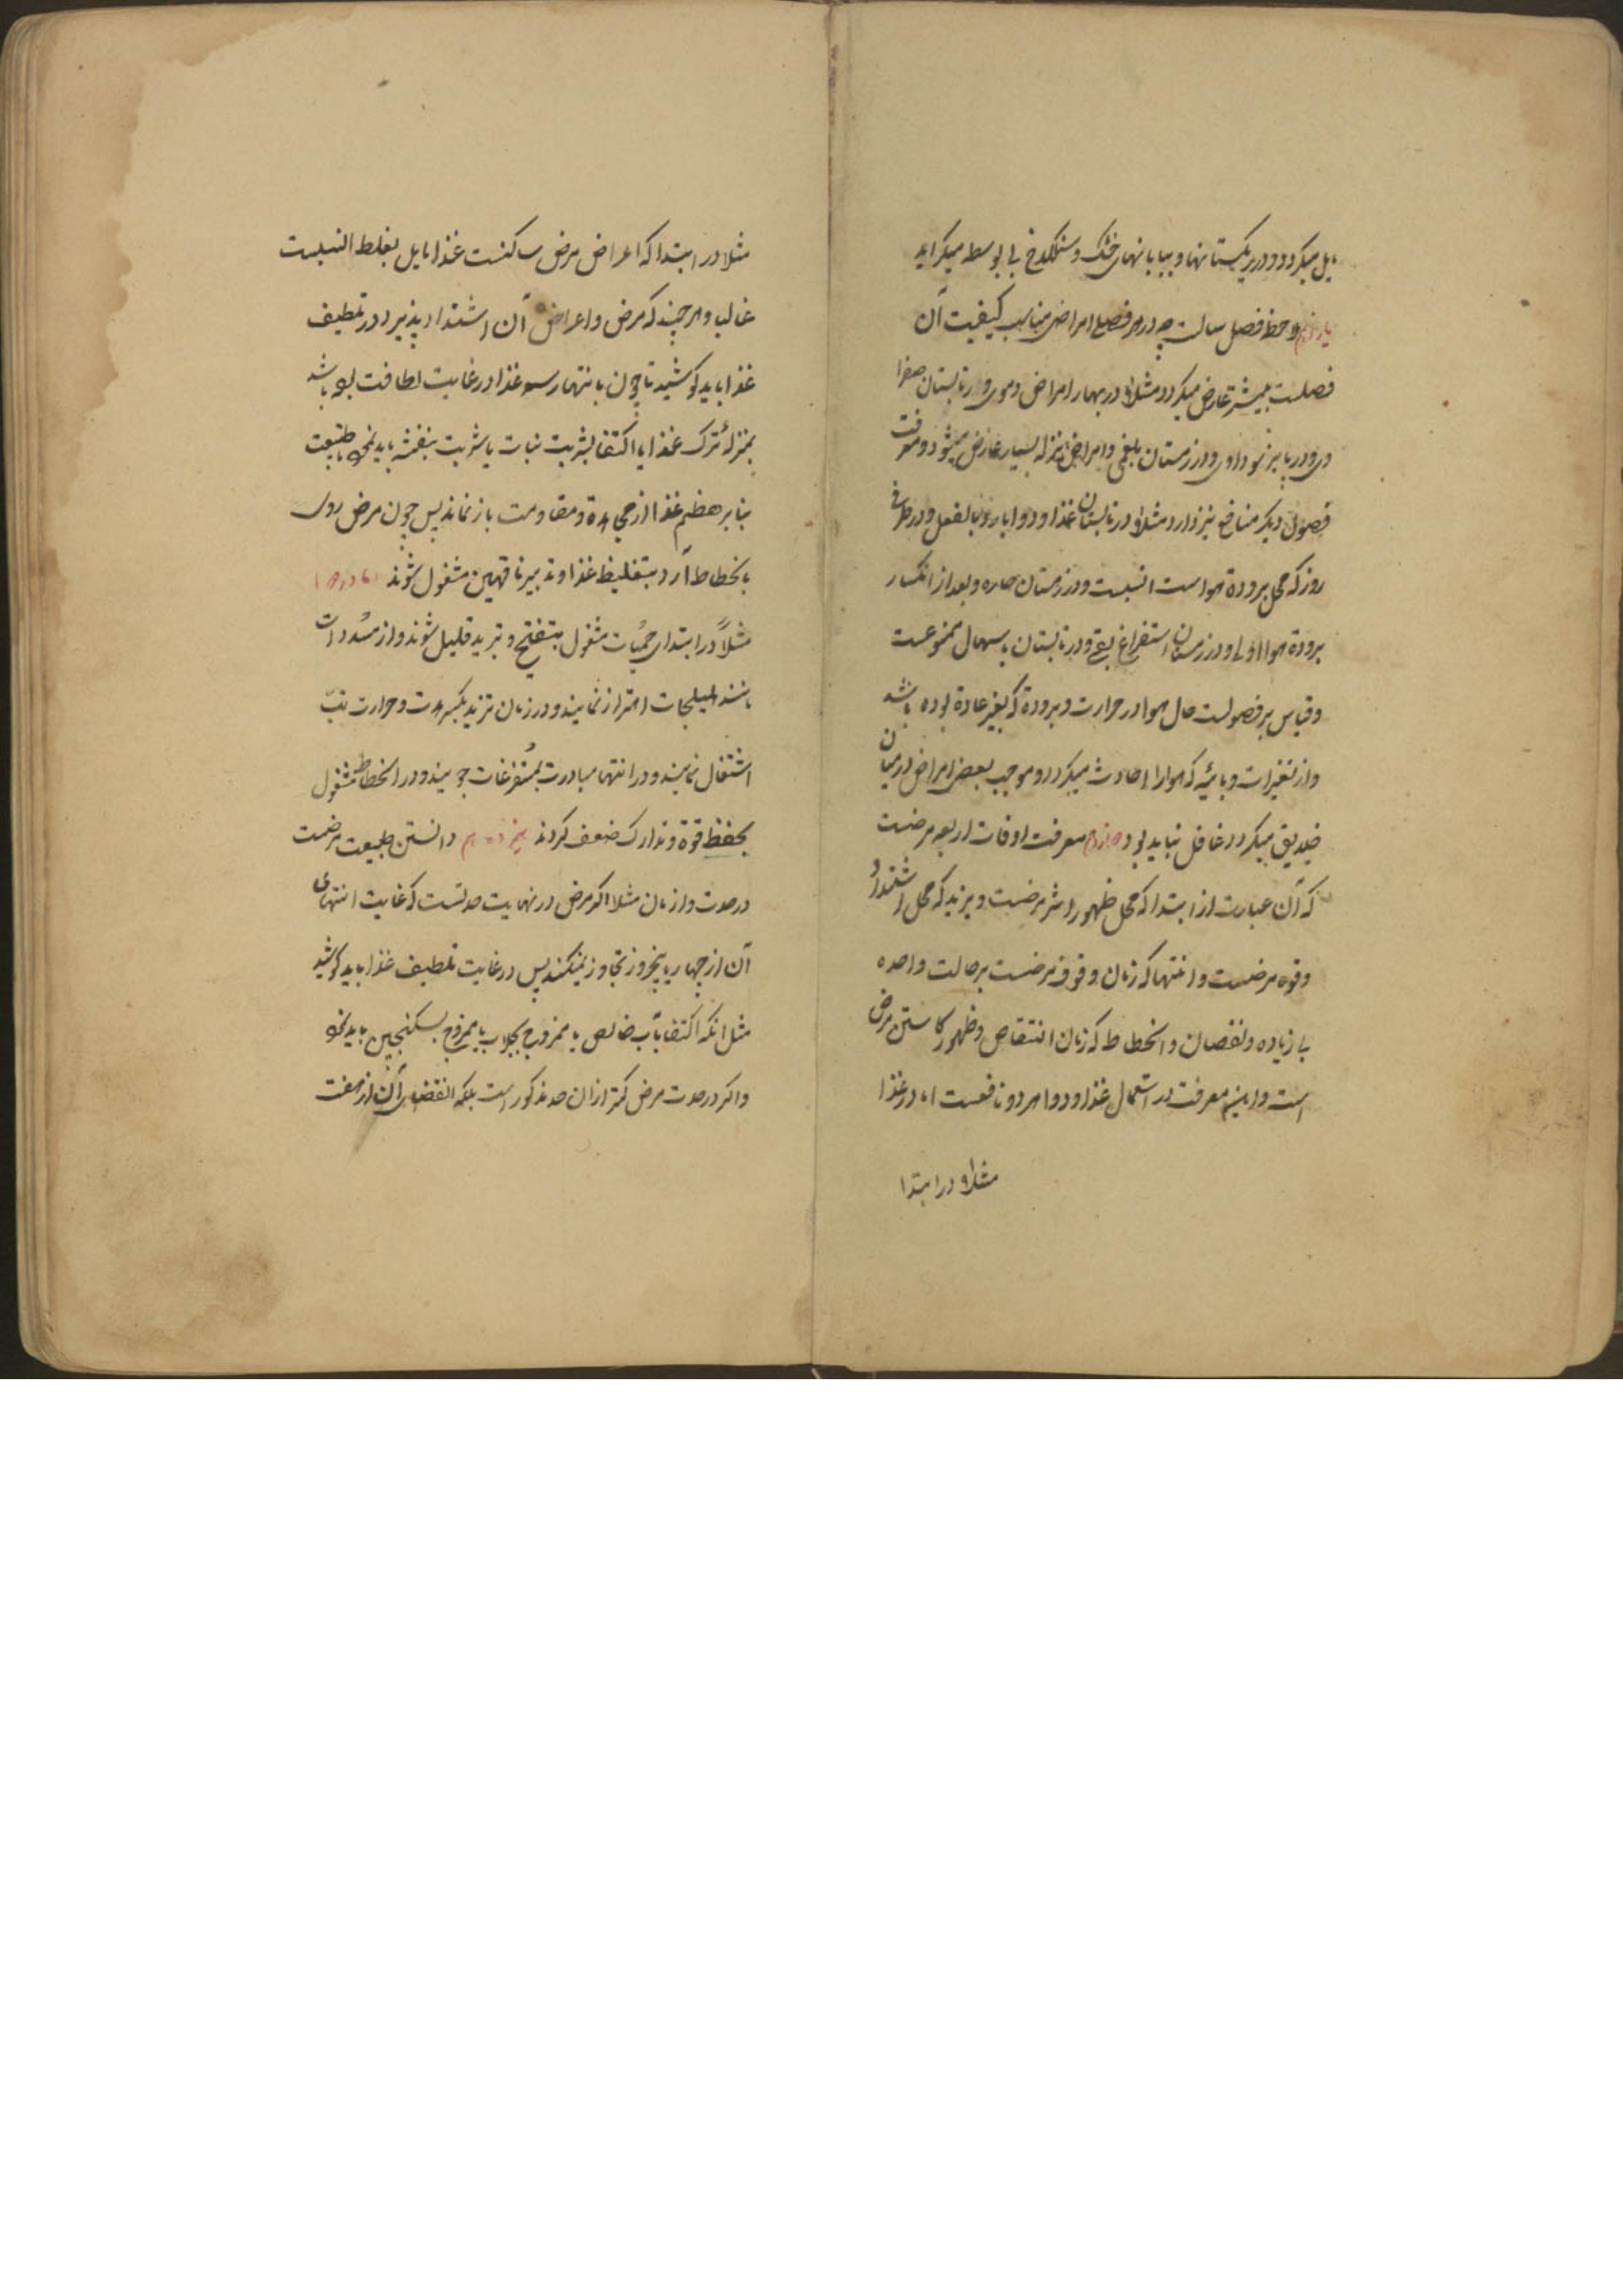 مایل میکردد و در ریکستانها و بیابانهای خشک و سنکلاخ بی بوسطه میکراید
یازدهم ملاحظه فصل سالست چه در هر فصلی امراض مناسب کیفیت آن
فصلست بیشتر عارض میکردد مثلا در بهار امراض دموی و در تابستان صفرا
وی و در پاییز سوداوی و در زمستان بلغمی و امراض نزله بسیار عارض میشود و معرفت
فصول دیکر منافع نیز دارد مثلا در تابستان غذا و دوا بارد بالفعل و در طرفی
روز که محل برودة هواست انسبست و در زمستان حاره و بعد از انکسار
برودة هوا اولی و در زمستان استفراغ بقی و در تابستان باسهال ممنوعست
و قیاس بر فصولست حال هوا در حرارت و برودة که بغیر عادة بوده باشد
و از تغیرات وبائیه که هوا را حادث میکردد و موجب بعض امراض درمیان
خلایق میکردد غافل نباید بود دوازدهم معرفت اوقات اربعه مرضست
که آن عبارت از ابتدا که محل ظهور اثر مرضست و تزید که محل اشتداد
و قوه مرضست و انتها که زمان وقوف مرضست بر حالت واحده
بی زیاده و نقصان و انحطاط که زمان انتقاص و ظهور کاستن مرض
است و این معرفت در استعمال غذا و دوا هر دو نافعست اما در غذا
مثلا در ابتدا
مثلا در ابتدا که اعراض مرض ساکنست غذا مایل بغلظ انسبست
غالب و هر چند که مرض و اعراض آن اشتداد پذیرد در تلطیف
غذا باید کوشید تا چون بانتها رسد غذا در غایت لطافت بوده باشد
بمنزلهٔ ترک غذا یا اکتفا بشربت نبات یا شربت بنفشه باید نمود تا طبیعت
بنابر هضم غذا از مجاهدة و مقاومت باز نماند پس چون مرض روی
بانحطاط آرد بتغلیظ غذا و تدبیر ناقهین مشغول شوند اما در دوا
مثلاً در ابتدای حمیات مشغول بتفتیح و تبرید قلیل شوند و از مسددات
مانند هلیلجات احتراز نمایند و در زمان تزید بکسر حدت و حرارت تب
اشتغال نمایند و در انتها مبادرت بمستفرغات جویند و در انحطاط مشغول
بحفظ قوة و تدارک ضعف کردند سیزدهم دانستن طبیعت مرضست
در حدت و ازمان مثلا اکر مرض در نهایت حدتست که غایت انتهای
آن از چهار یا پنجروز تجاوز نمیکند پس در غایت تلطیف غذا باید کوشید
مثل آنکه اکتفا بآب خالص یا ممزوج بجلاب یا ممزوج بسکنجبین باید نمود
و اکر در حدت مرض کمتر از آن حد مذکور است بلکه انقضای آن از هفت